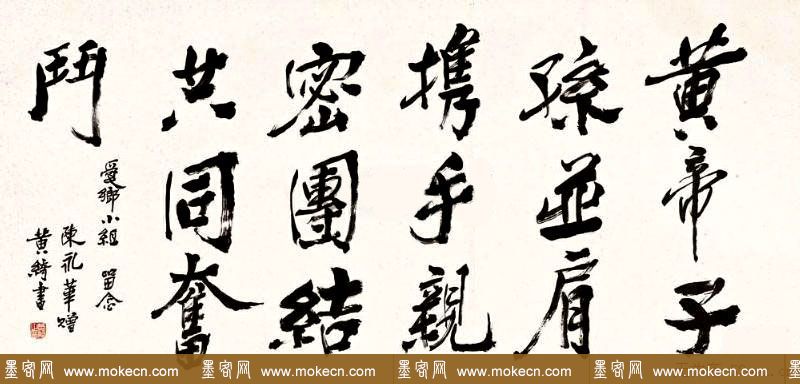 黃帝子
孫並肩
携手親
密團結
共同奮
鬥
愛鄉小組 留念
陳永華贈
黄綺書
墨客网 www.mokecn.com 墨客网 www.mokecn.com 墨客网 www.mokecn.com 墨客网 www.mokecn.com